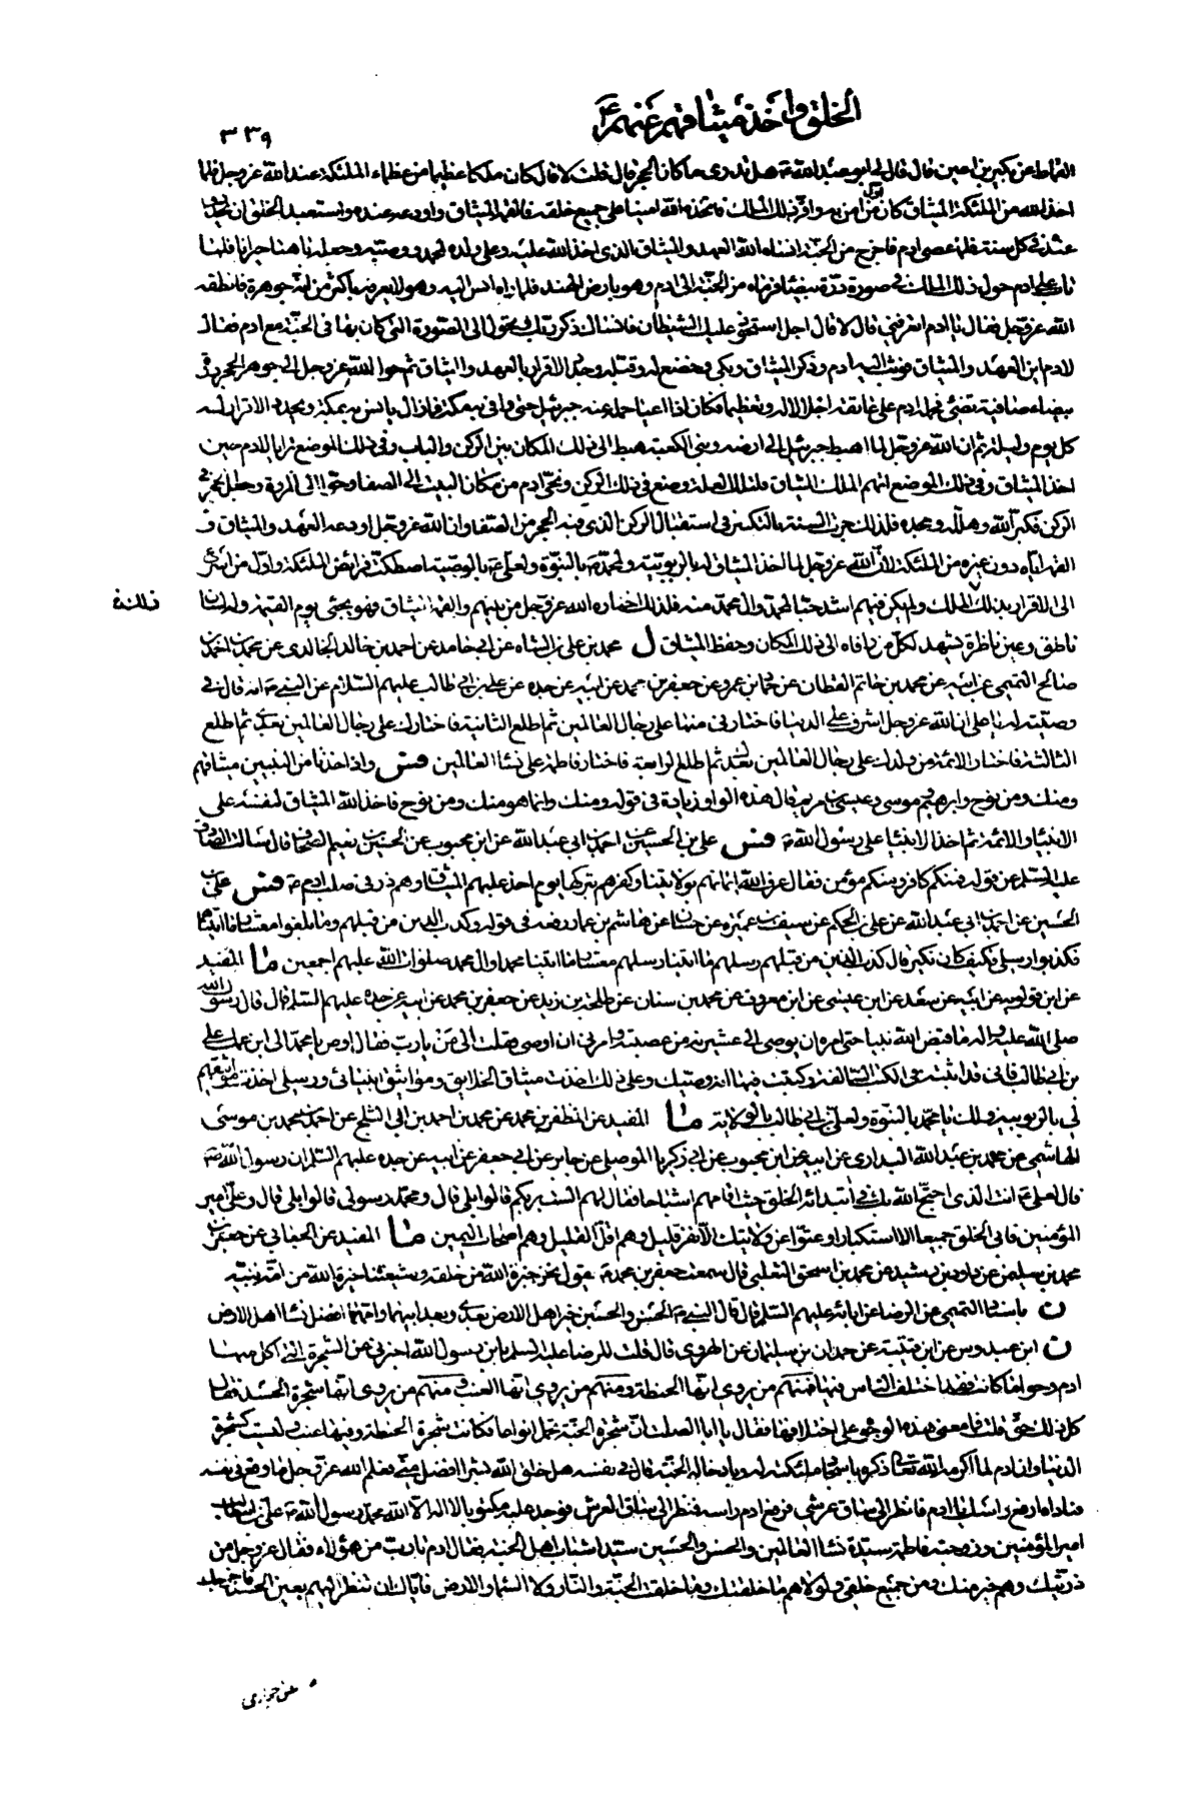 الخلق واخذ ميثاقهم عنهم
٣٣٩
القماط عن بكير بن اعين قال قال لي ابو عبد الله ع هل تدري ما كان الحجر قال قلت لا قال كان ملكا عظيما من عظماء الملئكة عند الله عز وجل فلما
اخذ الله من الملئكة الميثاق كان اول من امن به واقر ذلك الملك فاتخذه الله امينا على جميع خلقه فالقمه الميثاق واودعه عنده واستعبد الخلق ان يجددوا
عنده في كل سنة فلما عصى ادم فاخرج من الجنة انساه الله العهد والميثاق الذي اخذ الله عليه وعلى ولده لمحمد ووصيه وجعله تائها حيرانا فلما
تاب على ادم حول ذلك الملك في صورة درة بيضاء فرماه من الجنة الى ادم وهو بارض الهند فلما راه انس اليه وهو لا يعرفه باكثر من انه جوهرة فانطقه
الله عز وجل فقال يا ادم اتعرفني قال لا قال اجل استحوذ عليك الشيطان فانساك ذكر ربك وتحول الى الصورة التي كان بها في الجنة مع ادم فقال
لادم اين العهد والميثاق فوثب اليه ادم وذكر الميثاق وبكى وخضع له وقبله وجدد الاقرار بالعهد والميثاق ثم حول الله عز وجل الى جوهر الحجر درة
بيضاء صافية تضئ فحمله ادم على عاتقه اجلالا له وتعظيما فكان اذا اعيا حمله عنه جبرئيل حتى وافى به مكة فما زال يانس به بمكة ويجدد الاقرار له
كل يوم وليلة ثم ان الله عز وجل لما اهبط جبرئيل الى ارضه وبنى الكعبة هبط الى ذلك المكان بين الركن والباب وفي ذلك الموضع ترايا لادم حين
اخذ الميثاق وفي ذلك الموضع القم الملك الميثاق فلتلك العلة وضع في ذلك الركن ونحى ادم من مكان البيت الى الصفا وحوا الى المروة وجعل الحجر في
الركن فكبر الله وهلله ومجده فلذلك جرت السنة بالتكبير في استقبال الركن الذي فيه الحجر من الصفا وان الله عز وجل اودعه العهد والميثاق و
القمه اياه دون غيره من الملئكة لان الله عز وجل لما اخذ الميثاق له بالربوبية ولمحمد ص بالنبوة ولعلي ع بالوصية اصطكت فرائص الملئكة واول من اسرع
الى الاقرار بذلك الملك ولم يكن فيهم اشد حبا لمحمد وال محمد منه فلذلك اختاره الله عز وجل من بينهم والقمه الميثاق فهو يجئ يوم القيمة وله لسان
ناطق وعين ناظرة يشهد لكل من وافاه الى ذلك المكان وحفظ الميثاق ل محمد بن علي بن الشاه عن ابي حامد عن احمد بن خالد الخالدي عن محمد بن احمد بن
صالح التميمي عن ابيه عن محمد بن حاتم القطان عن حماد بن عمرو عن جعفر بن محمد عن ابيه عن جده عن علي بن ابي طالب عليهم السلام عن النبي ص انه قال في
وصيته له يا علي ان الله عز وجل اشرف على الدنيا فاختارني منها على رجال العالمين ثم اطلع الثانية فاختارك على رجال العالمين بعدي ثم اطلع
الثالثة فاختار الائمة من ولدك على رجال العالمين بعدك ثم اطلع الرابعة فاختار فاطمة على نساء العالمين فس واذ اخذنا من النبيين ميثاقهم
ومنك ومن نوح وابرهيم وموسى وعيسى بن مريم قال هذه الواو زيادة في قوله ومنك وانما هو منك ومن نوح فاخذ الله الميثاق لنفسه على
الانبياء والائمة ثم اخذ الانبياء على رسول الله ص فس علي بن الحسين عن احمد بن ابي عبد الله عن ابن محبوب عن الحسين بن نعيم الصحاف قال سالت الصادق
عليه السلم عن قوله فمنكم كافر ومنكم مؤمن فقال عرف الله ايمانهم بولايتنا وكفرهم بتركها يوم اخذ عليهم الميثاق وهم ذر في صلب ادم ع فس علي بن
الحسين عن احمد بن ابي عبد الله عن علي بن الحكم عن سيف بن عميرة عن حسان عن هاشم بن عمار رفعه في قوله وكذب الذين من قبلهم وما بلغوا معشار ما اتيناهم
فكذبوا رسلي فكيف كان نكير قال كذب الذين من قبلهم رسلهم ما اتينا رسلهم معشار ما اتينا محمدا وال محمد صلوات الله عليهم اجمعين ما المفيد
عن ابن قولويه عن ابيه عن سعد عن ابن عيسى عن ابن معروف عن محمد بن سنان عن طلحة بن زيد عن جعفر بن محمد عن ابيه عن جده عليهم السلم قال قال رسول الله
صلى الله عليه واله ما قبض الله نبيا حتى امره ان يوصي الى عشيرته من عصبته وامرني ان اوصي فقلت الى من يا رب فقال اوص يا محمد الى ابن عمك علي
بن ابي طالب فاني قد اثبته في الكتب السالفة وكتبت فيها انه وصيك وعلى ذلك اخذت ميثاق الخلايق ومواثيق انبيائي ورسلي اخذت مواثيقهم
لي بالربوبية ولك يا محمد بالنبوة ولعلي بن ابي طالب بالولاية ما المفيد عن المظفر بن محمد عن محمد بن احمد بن ابي الثلج عن احمد بن محمد بن موسى
الهاشمي عن محمد بن عبد الله الـداري عن ابيه عن ابن محبوب عن ابي زكريا الموصلي عن جابر عن ابي جعفر عن ابيه عن جده عليهم السلم ان رسول الله ص
قال لعلي ع انت الذي احتج الله بك في ابتدائه الخلق حيث اقامهم اشباحا فقال لهم الست بربكم قالوا بلى قال ومحمد رسولي قالوا بلى قال وعلي امير
المؤمنين فابى الخلق جميعا الا استكبارا وعتوا عن ولايتك الا نفر قليل وهم اقل القليل وهم اصحاب اليمين ما المفيد عن الجعابي عن جعفر بن
محمد بن سليمن عن داود بن رشيد عن محمد بن اسحق الثعلبي قال سمعت جعفر بن محمد ع يقول نحن خيرة الله من خلقه وشيعتنا خيرة الله من امة نبيه
ن باسناد التميمي عن الرضا عن ابائه عليهم السلم قال قال النبي ص الحسن والحسين خير اهل الارض بعدي وبعد ابيهما وامهما افضل نساء اهل الارض
ن ابن عبدوس عن ابن قتيبة عن حمدان بن سليمان عن الهروي قال قلت للرضا عليه السلم يابن رسول الله اخبرني عن الشجرة التي اكل منها
ادم وحوا ما كانت فقد اختلف الناس فيها فمنهم من يروي انها الحنطة ومنهم من يروي انها العنب ومنهم من يروي انها شجرة الحسد فقال
كل ذلك حق قلت فما معنى هذه الوجوه على اختلافها فقال يا ابا الصلت ان شجرة الجنة تحمل انواعا فكانت شجرة الحنطة وفيها عنب وليست كشجرة
الدنيا وان ادم لما اكرمه الله تعالى ذكره باسجاد ملئكته له وبادخاله الجنة قال في نفسه هل خلق الله بشرا افضل مني فعلم الله عز وجل ما وقع في نفسه
فناداه ارفع راسك يا ادم فانظر الى ساق عرشي فرفع ادم راسه فنظر الى ساق العرش فوجد عليه مكتوبا لا اله الا الله محمد رسول الله ص علي بن ابي طالب
امير المؤمنين وزوجته فاطمة سيدة نساء العالمين والحسن والحسين سيدا شباب اهل الجنة فقال ادم يا رب من هؤلاء فقال عز وجل من
ذريتك وهم خير منك ومن جميع خلقي ولولاهم ما خلقتك وما خلقت الجنة والنار ولا السماء والارض فاياك ان تنظر اليهم بعين الحسد فاخرجك